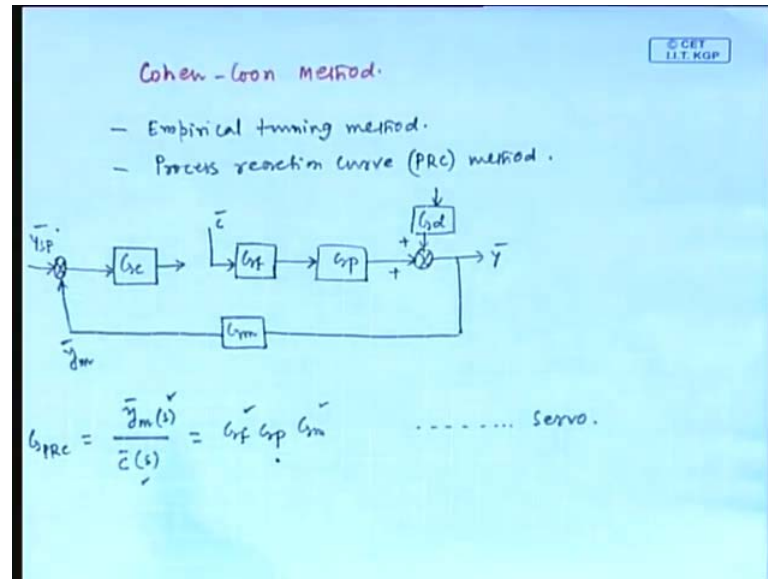 © CET
I.I.T. KGP
Cohen-Coon method.
- Empirical tunning method.
- Process reaction curve (PRC) method.
c̄
Gd
ȳSP
+
Gc
Gf
Gp
+
ȳ
Gm
ȳm
GPRC = ȳm(s) / c̄(s) = Gf Gp Gm ........ Servo.